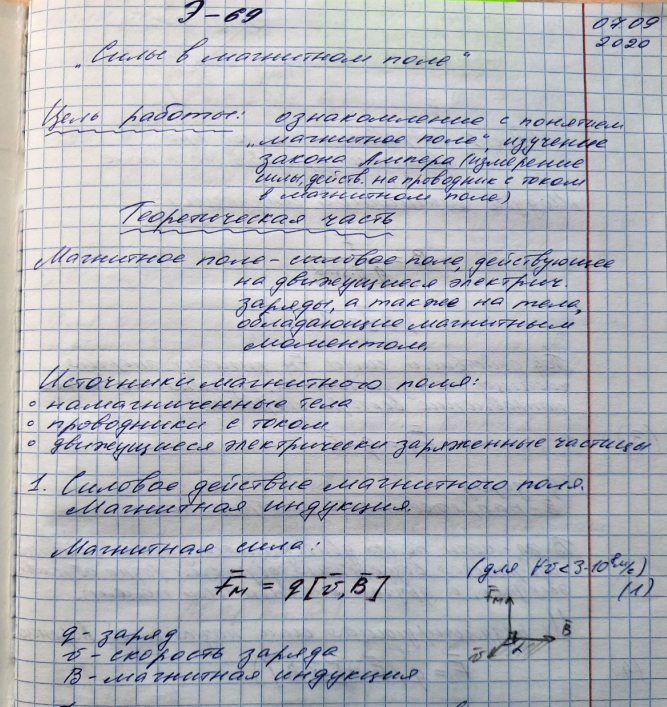 Э-69
07 09
2020
„Силы в магнитном поле“
Цель работы: ознакомление с понятием
„магнитное поле“, изучение
закона Ампера (измерение
силы, действ. на проводник с током
в магнитном поле)
Теоретическая часть
Магнитное поле - силовое поле, действующее
на движущиеся электрич.
заряды, а также на тела,
обладающие магнитным
моментом.
Источники магнитного поля:
◦ намагниченные тела
◦ проводники с током
◦ движущиеся электрически заряженные частицы
1. Силовое действие магнитного поля.
Магнитная индукция.
Магнитная сила:
(для ∀v<3·10⁸ м/с)
F̄м = q[v̄, B̄] (1)
F̄м
B̄
v̄
α
q - заряд
v̄ - скорость заряда
B - магнитная индукция